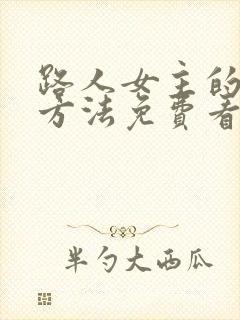 路人女主的
方法免費看
半勺大西瓜